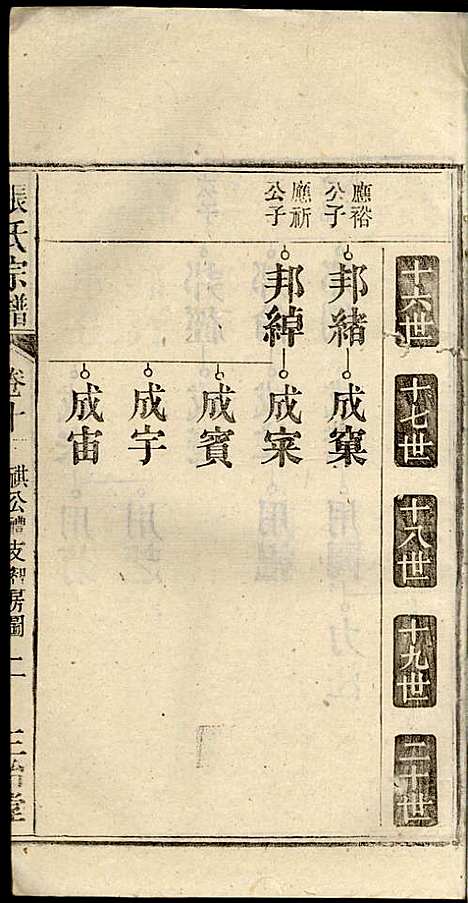 十六世 十七世 十八世 十九世 二十世
應裕公子 邦緒 成窠
應祈公子 邦綽 成寀
成賓
成宇
成宙
張氏宗譜 卷十 祺公禮支智房圖 二 三治堂